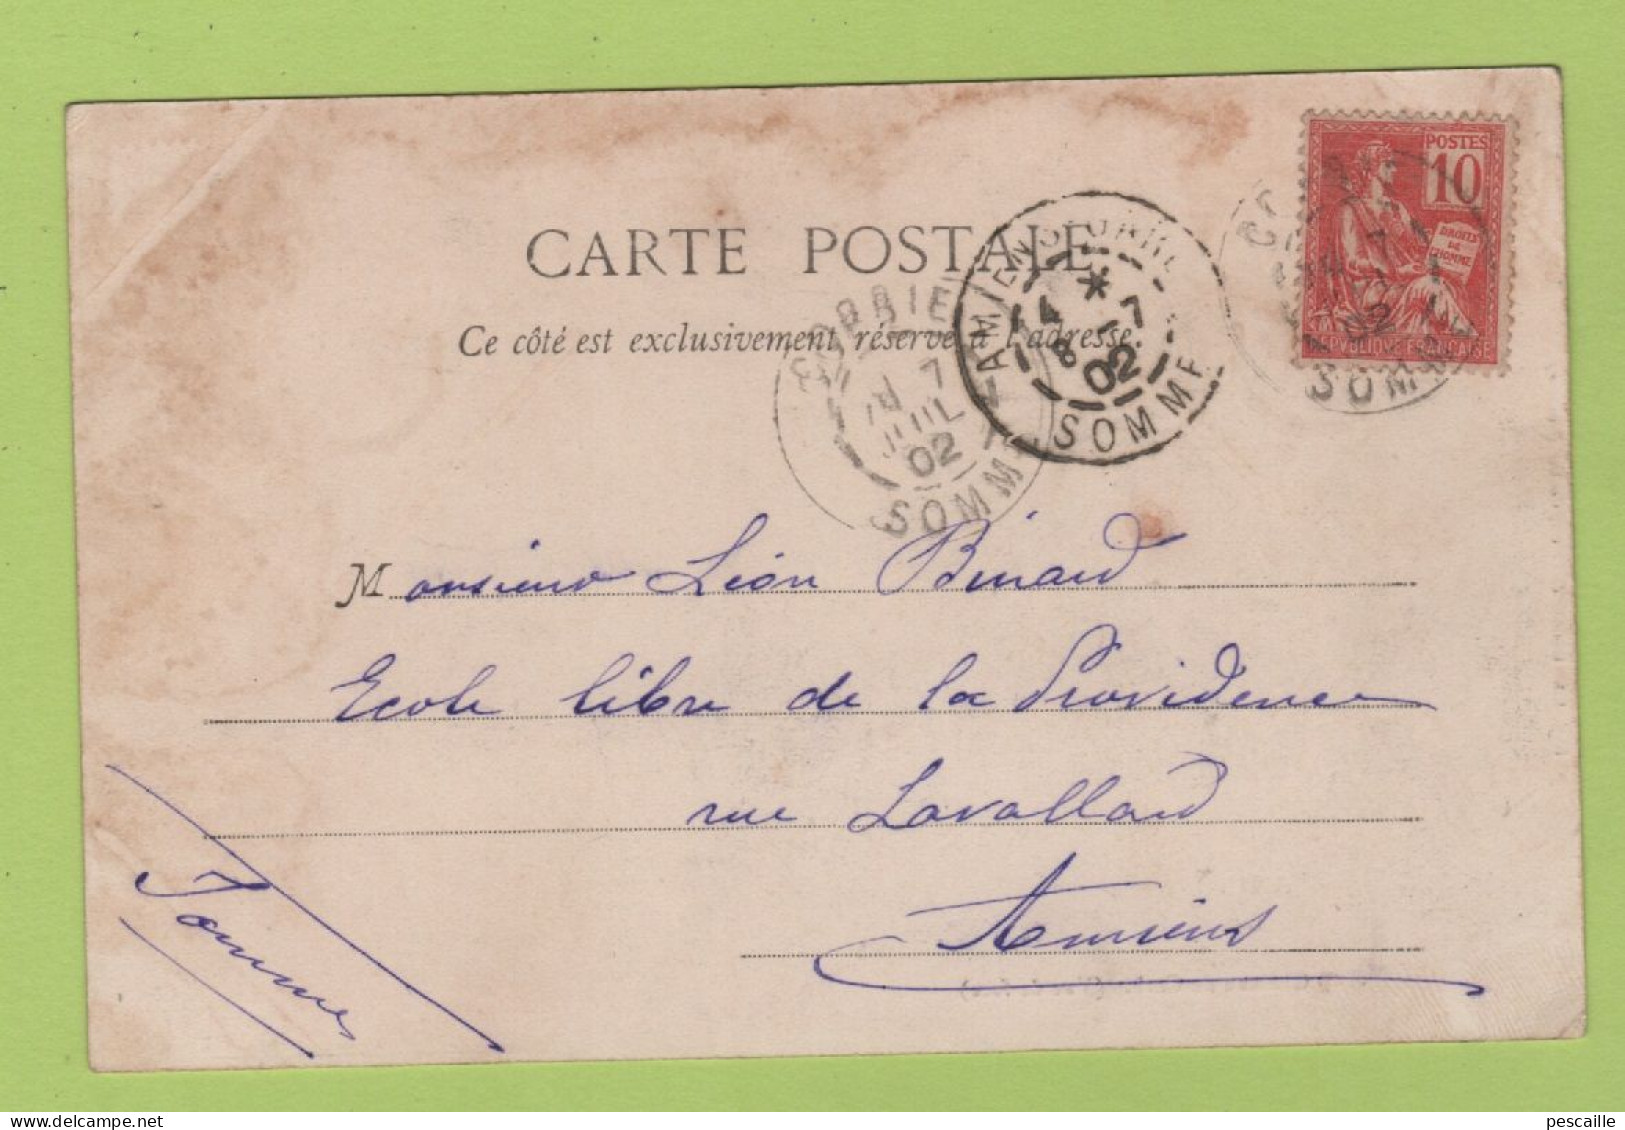 CARTE POSTALE
Ce côté est exclusivement réservé à l'adresse.
POSTES
10
DROITS
DE
L'HOMME
REPVBLIQUE FRANCAISE
CORBIE
7
JUIL
02
SOMME
AMIENS GARE
4 * 7
8
02
SOMME
02
SOMME
Monsieur Léon Binard
Ecole libre de la Providence
rue Lavallard
Amiens
Somme
pescaille